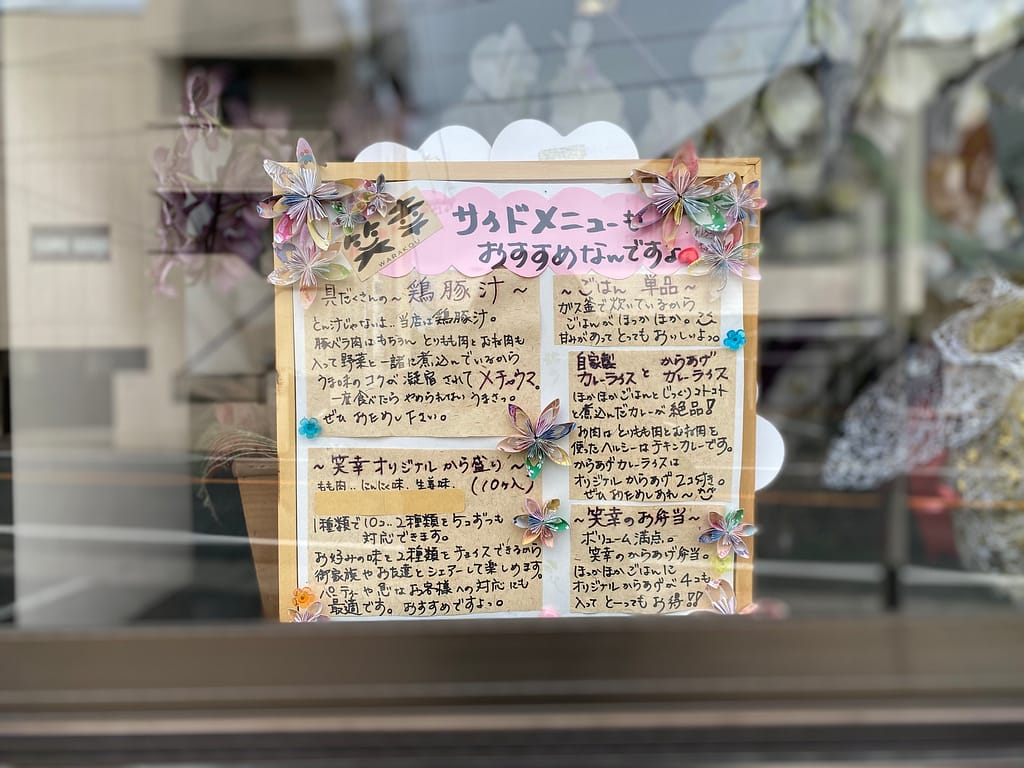 笑幸
WARAKOU
サイドメニューも
おすすめなんですよ
具だくさんの~鶏豚汁~
とん汁じゃないよ..当店は鶏豚汁。
豚バラ肉はもちろん とりもも肉とむね肉も
入って野菜と一緒に煮込んでいるから
うま味のコクが凝宿されてメチャウマ。
一度食べたら やめられないうまさっ。
ぜひ おためし下さい。
~笑幸オリジナルから盛り~
もも肉..にんにく味、生姜味.(10ヶ入)
1種類で10コ..2種類を5コずつも
対応できます。
お好みの味を2種類をチョイスできるから
御家族やお友達とシェアーして楽しめます。
パーティーや急なお客様への対応にも
最適です。おすすめですよっ。
~ごはん 単品~
ガス釜で炊いているから
ごはんがほっかほか。
甘みがあってとってもおいしいよっ
自家製 からあげ
カレーライスとカレーライス
ほかほかごはんとじっくりコトコト
と煮込んだカレーが絶品!
お肉はとりもも肉とむね肉を
使ったヘルシーなチキンカレーです。
からあげカレーライスは
オリジナルからあげ2コ付き。
ぜひおためしあれ~
~笑幸のお弁当~
ボリューム満点。
笑幸のからあげ弁当。
ほっかほかごはんに
オリジナルからあげが4コも
入って とーってもお得!!